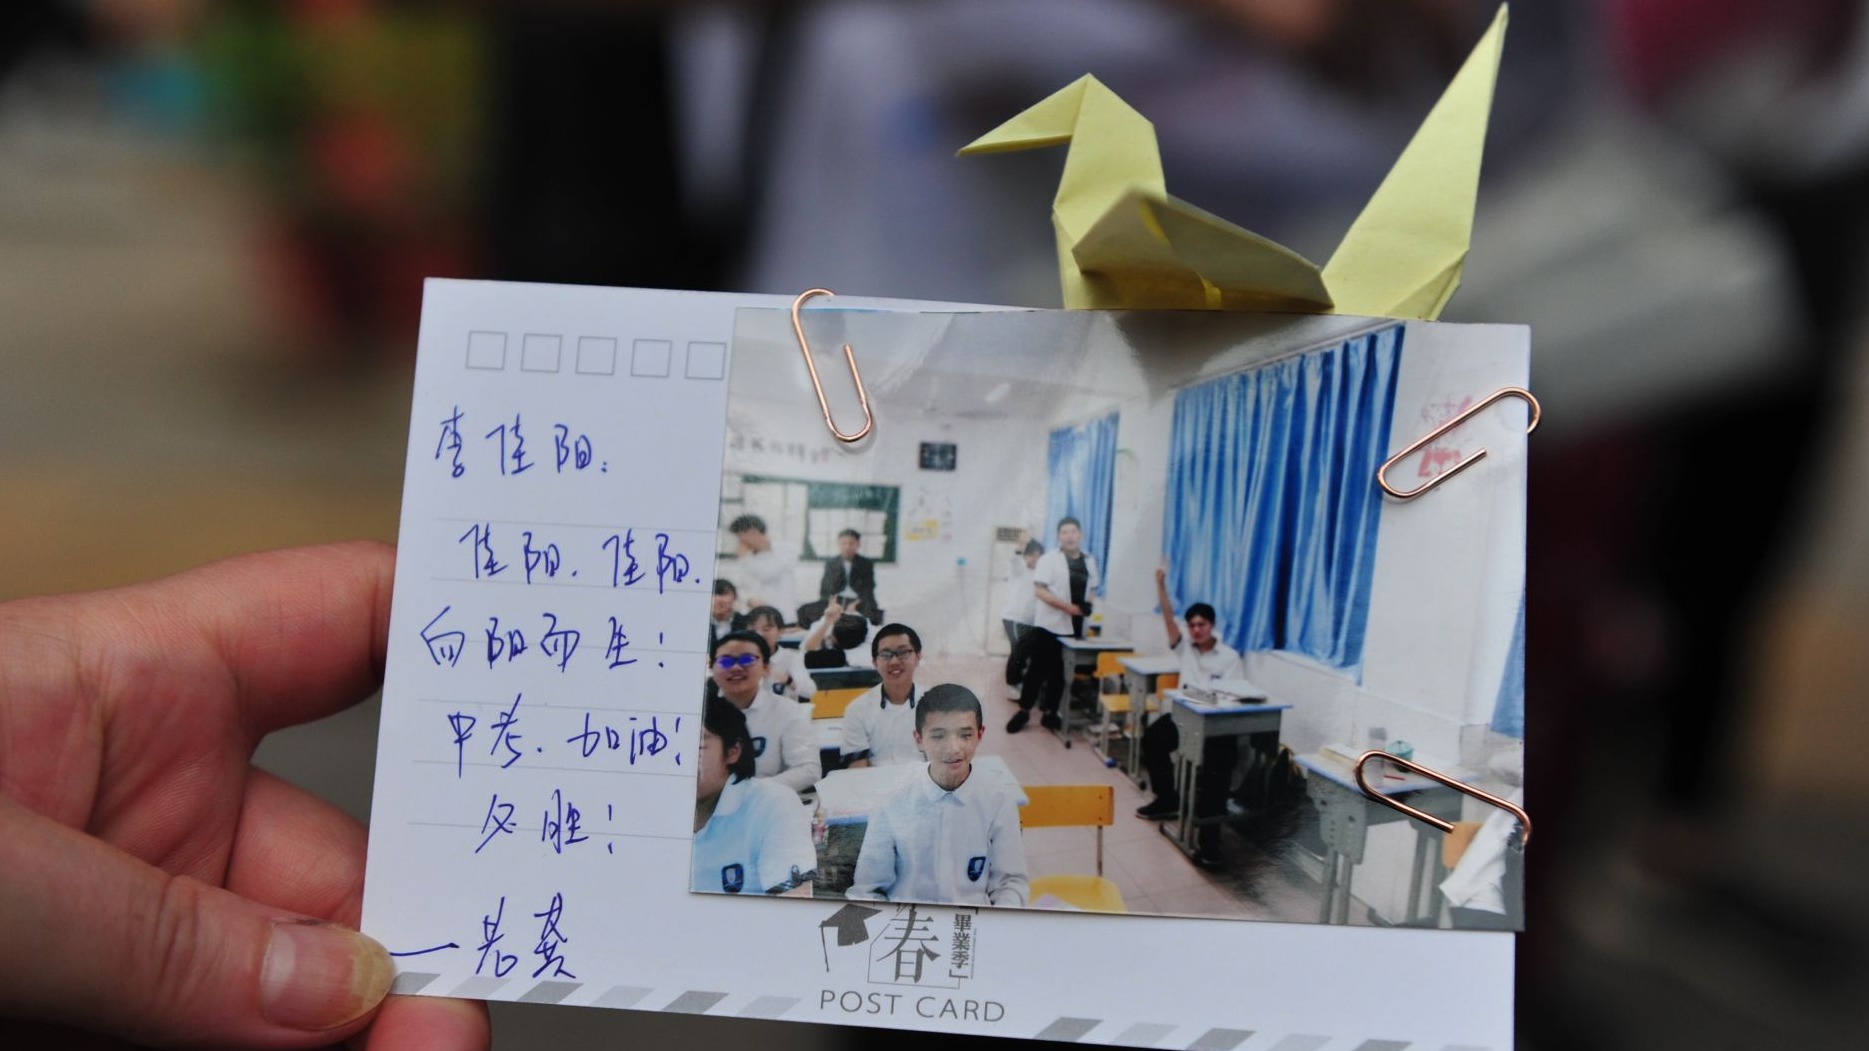 李佳阳：
佳阳、佳阳、
向阳而生！
中考、加油！
必胜！
—老龚
春
「畢業季」
POST CARD